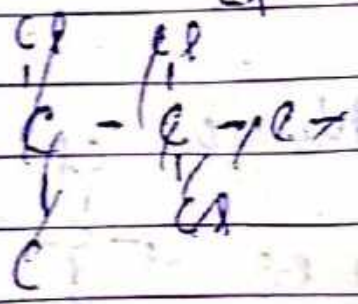 Cl Cl
C - C - C -
C Cl